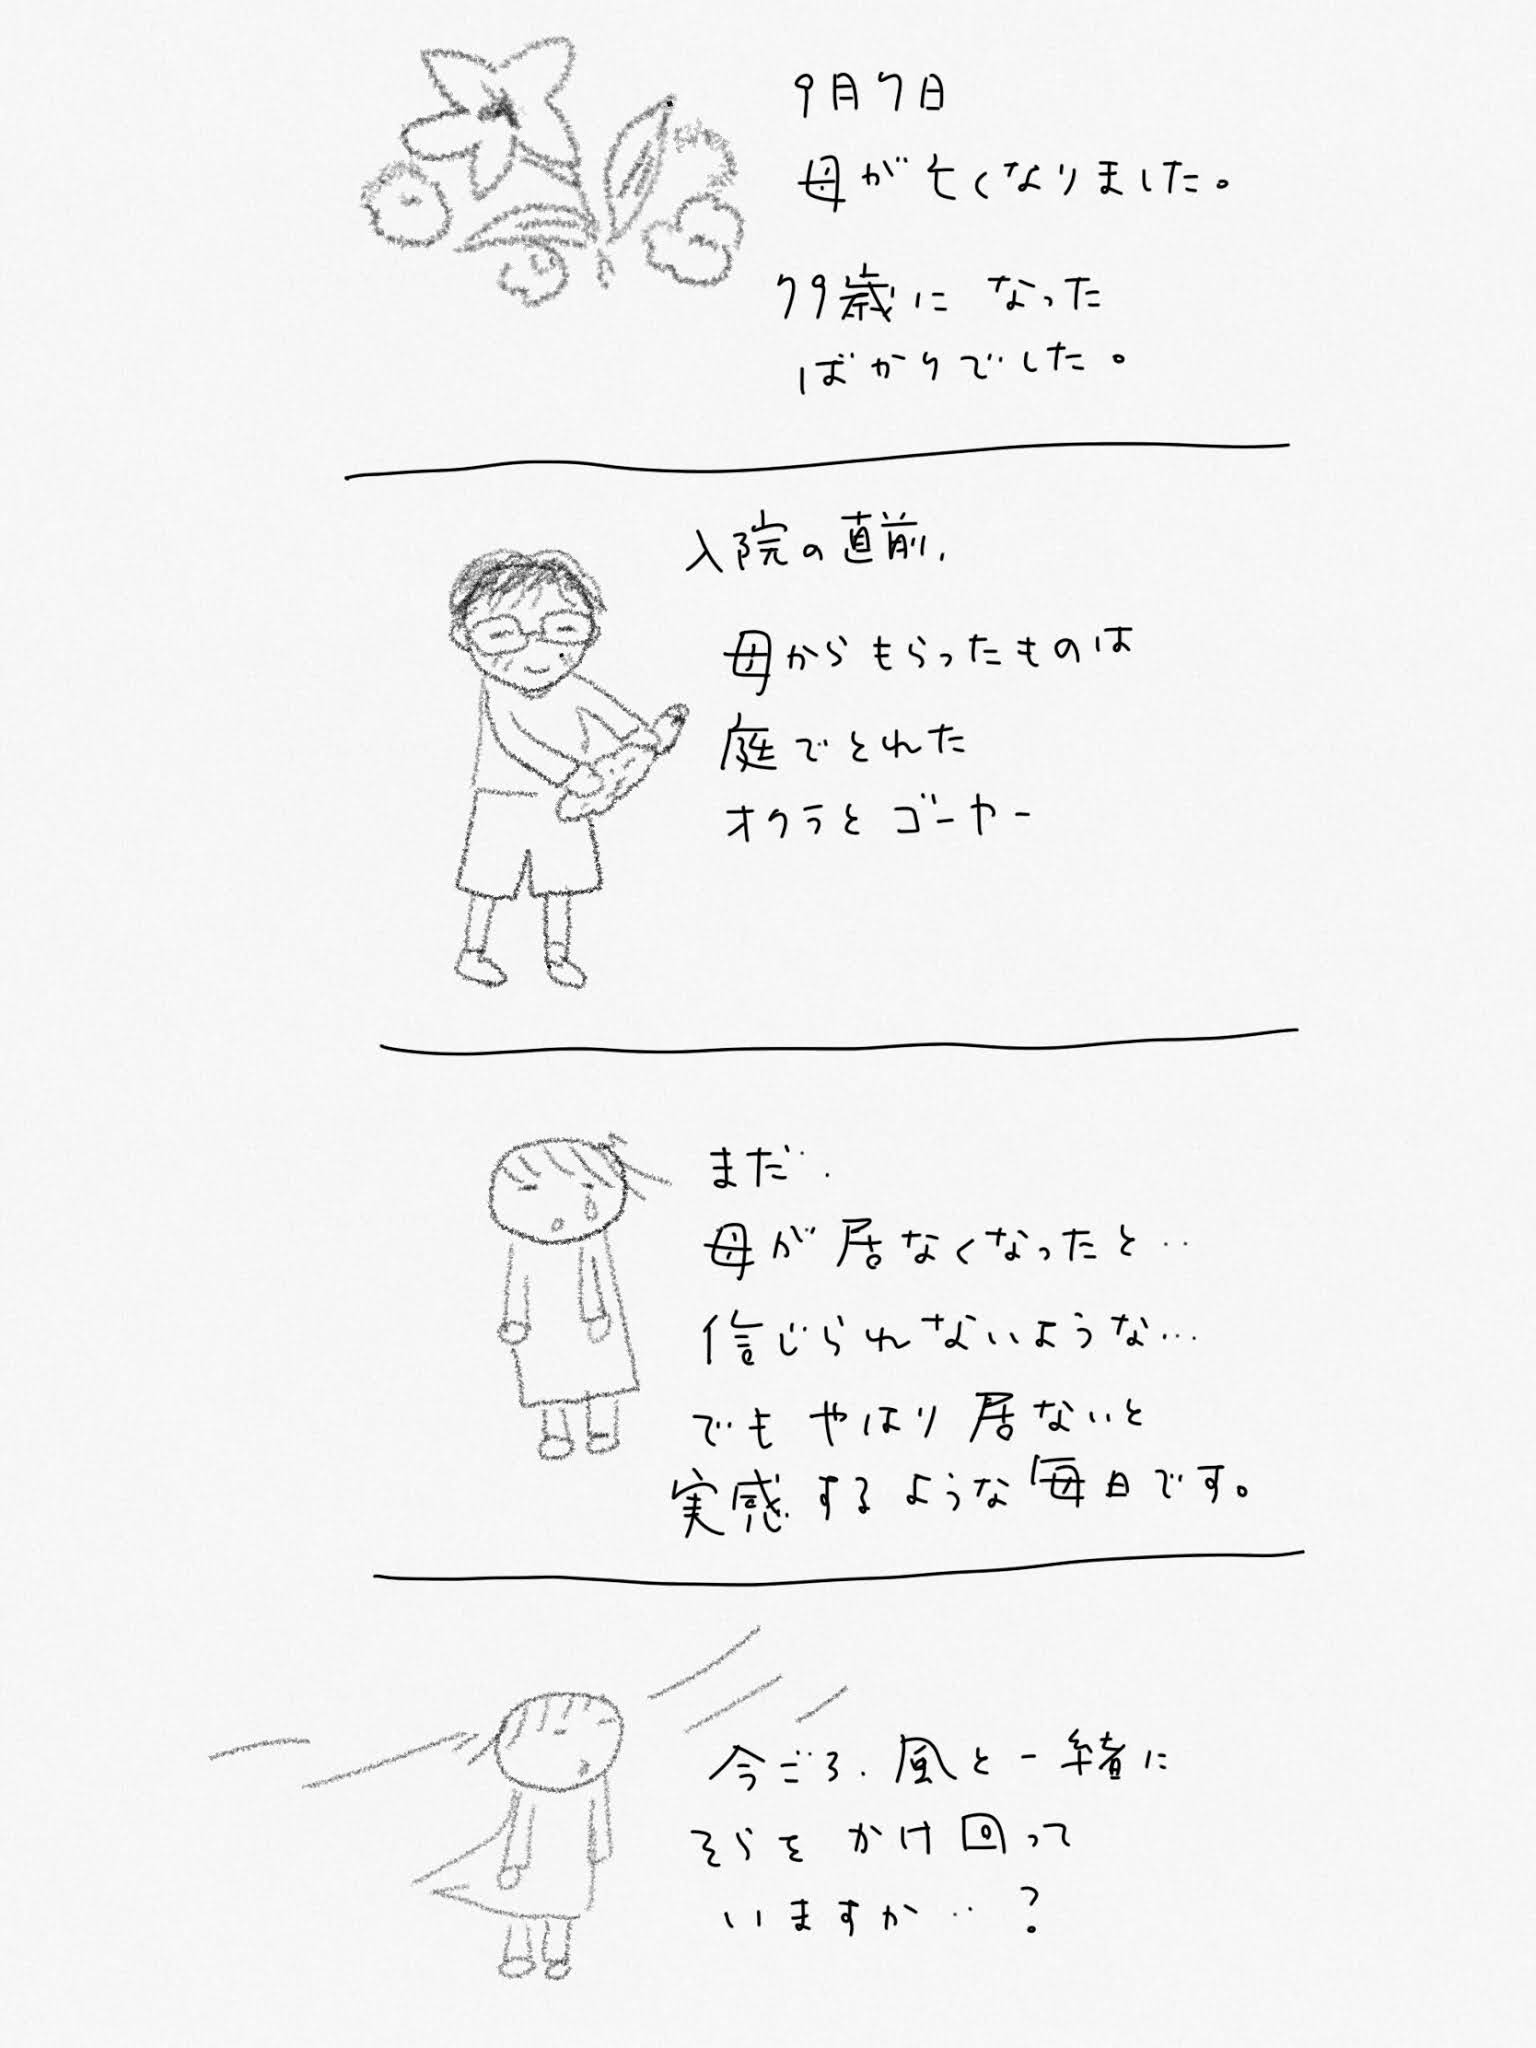 9月7日
母が亡くなりました。
79歳になった
ばかりでした。
入院の直前、
母からもらったものは
庭でとれた
オクラとゴーヤー
まだ‥.
母が居なくなったと‥
信じられないような…
でもやはり居ないと
実感するような毎日です。
今ごろ.風と一緒に
そらをかけ回って
いますか‥?